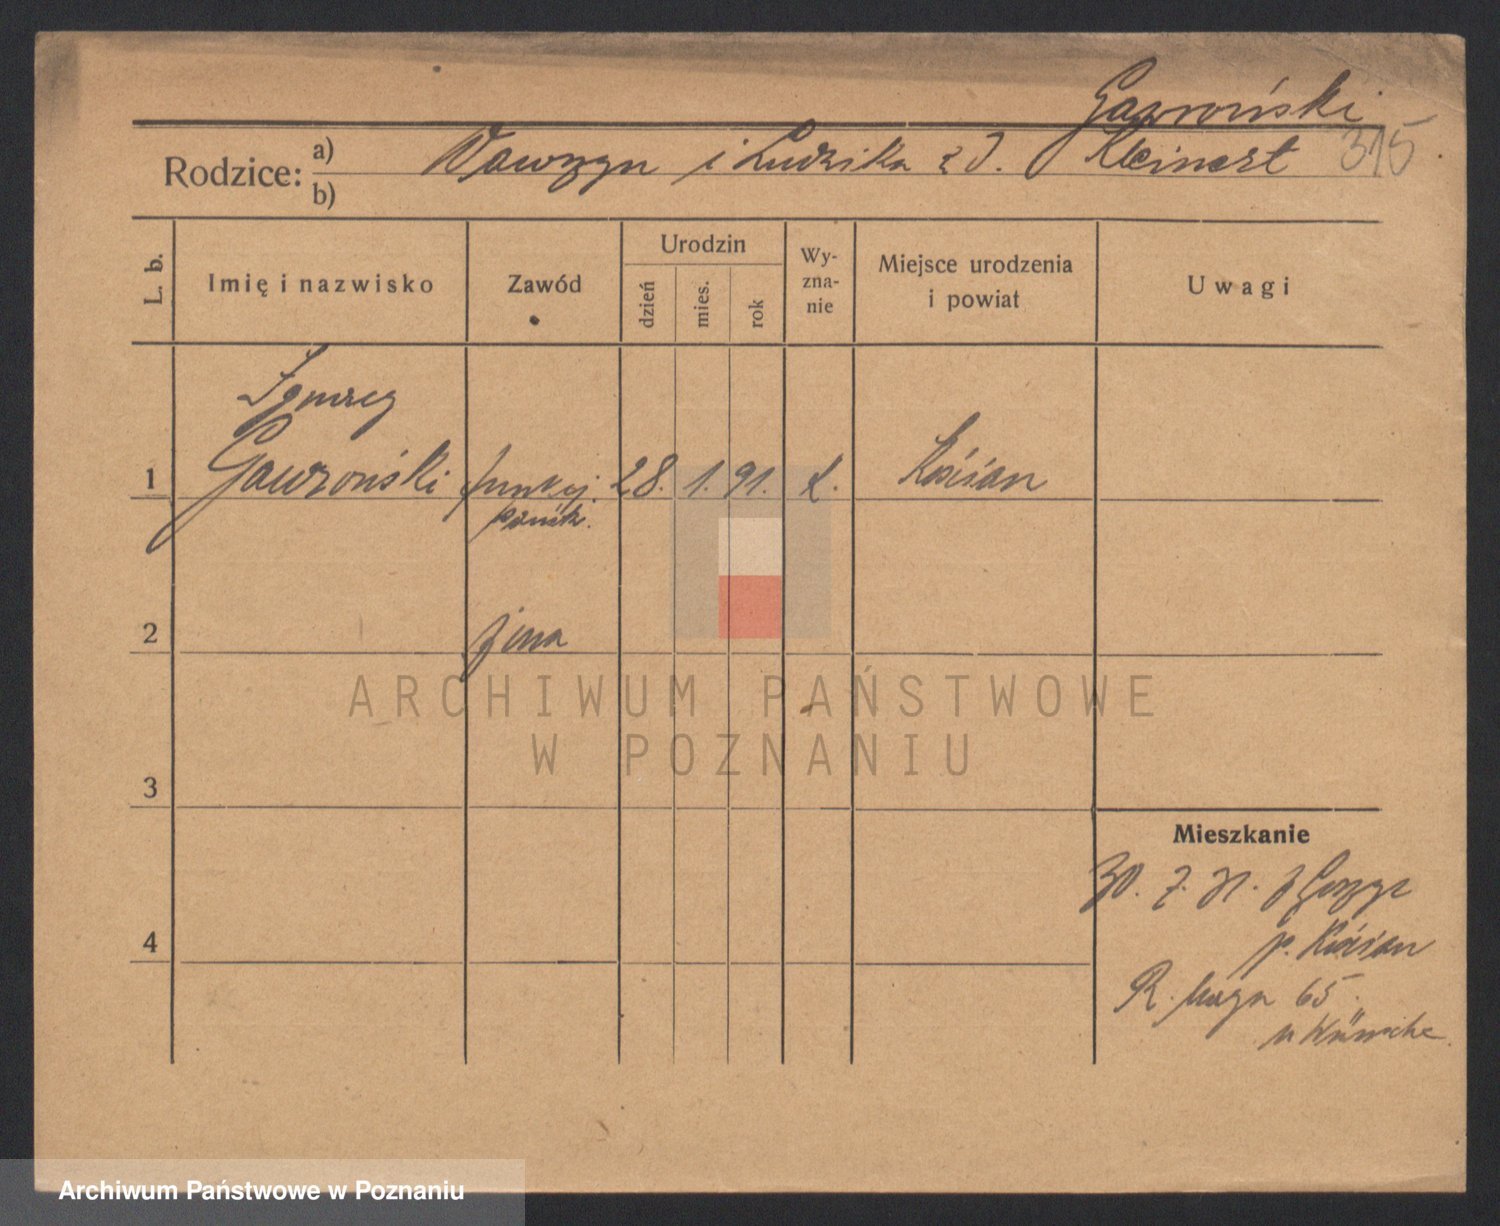 Gawroński
Rodzice: a) b) Wawrzyn i Ludwika z d. Kleinert 315
L. b.
Imię i nazwisko
Zawód
Urodzin
dzień
mies.
rok
Wy-
zna-
nie
Miejsce urodzenia
i powiat
Uwagi
Ignacy
1 Gawroński 28. 1. 91. k. Kościan
2 żona
3
4
ARCHIWUM PAŃSTWOWE
W POZNANIU
Mieszkanie
30. 7. 31. z
p. Kościan
R. 65.
u
Archiwum Państwowe w Poznaniu